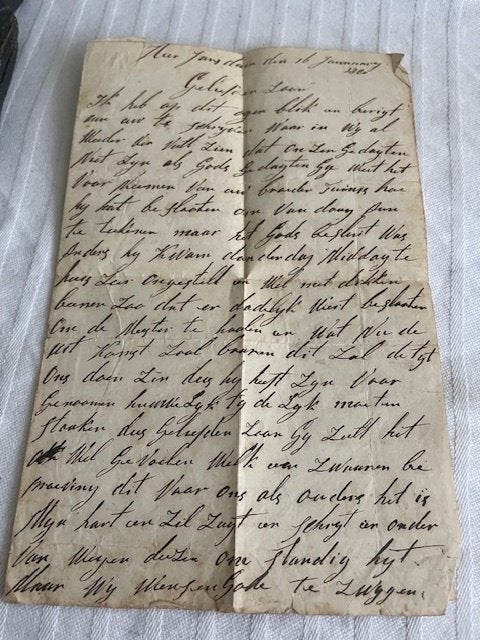 den 16 Januwarij
Geliefsen Zoon
Ik heb op dit ogen blik un berigt
aan uw te schryven Waar in Wy al
Weder der Uitt Zien dat onzen Gedagten
Niet Zyn als Gods Gedagten Gy Weet het
Voor Neemen Van uw brouder Teunis hoe
hy hat beslooten om Van daag
te teekenen maar het Gods besluit Was
Anders hy Kwam donderdag Middag te
huis Zeer ongestelt en Wel met dikken
beenen Zoo dat er dadelyk Wiert beslooten
Om de Meyster te haalen en Wat Nu de
Uit Komst Zaal baaren dit Zal de tyt
Ons doen Zien dus hy heeft Zyn Voor
Genoomen huwelyk tydelyk moeten
staaken dus Geliefden Zoon Gy Zult het
Wel Gevoelen Welk een Zwaaren be
proeving dit Voor Ons als ouders het is
Myn hart en Ziel Zugt en schryt er onder
Van Wegen dezen omstandig hyt
Maar Wy Wensen Gode te Zwygen